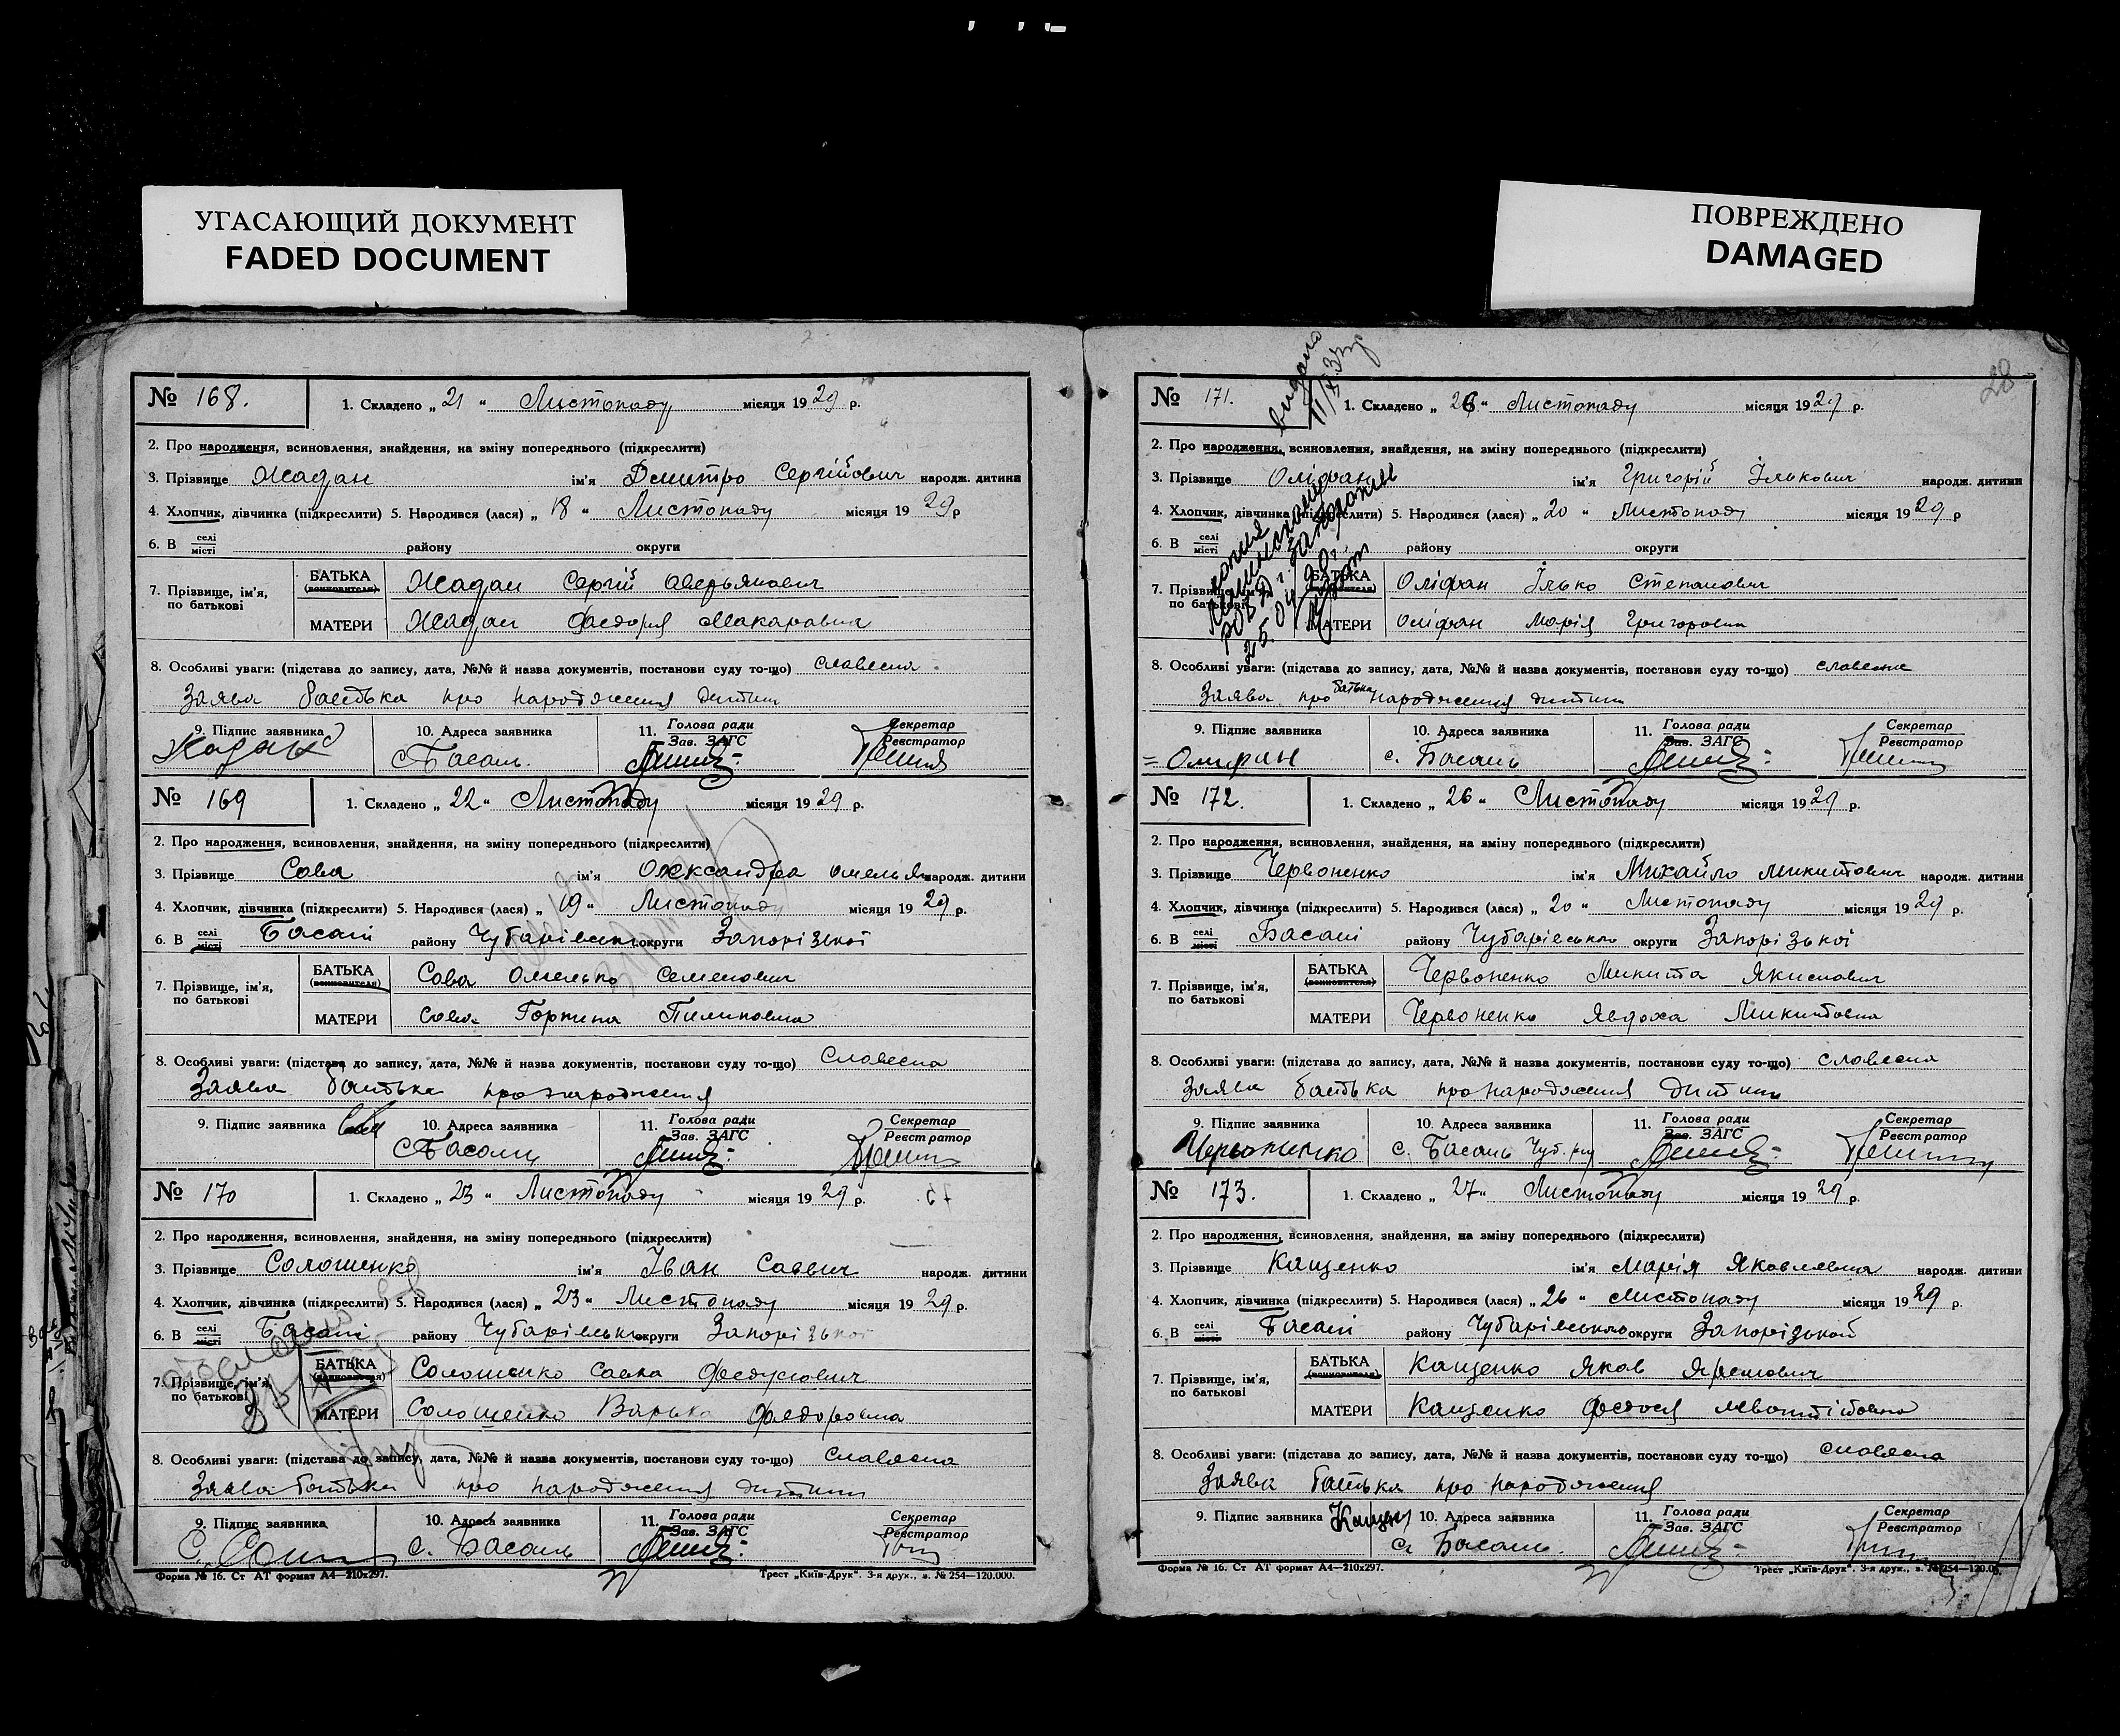 УГАСАЮЩИЙ ДОКУМЕНТ
FADED DOCUMENT
ПОВРЕЖДЕНО
DAMAGED
№ 168. 1. Складено „ 21 “ Листопаду місяця 1929 р.
2. Про народження, всиновлення, знайдення, на зміну попереднього (підкреслити)
3. Прізвище Жадан ім'я Дмитро Сергійович народж. дитини
4. Хлопчик, дівчинка (підкреслити) 5. Народився (лася) „ 18 “ Листопаду місяця 1929 р
6. В селі місті району округи
7. Прізвище, ім'я, по батькові
БАТЬКА (всиновителя) Жадан Сергій Аверьянович
МАТЕРИ Жадан Федорія Макаровна
8. Особливі уваги: (підстава до запису, дата, №№ й назва документів, постанови суду то-що) словесна
Заява батька про народження дитини
9. Підпис заявника 10. Адреса заявника 11. Голова ради Зав. ЗАГС Секретар Реєстратор
Жадан с. Басань
№ 169 1. Складено „ 22 “ Листопаду місяця 1929 р.
2. Про народження, всиновлення, знайдення, на зміну попереднього (підкреслити)
3. Прізвище Сова ім'я Олександра Омельян народж. дитини
4. Хлопчик, дівчинка (підкреслити) 5. Народився (лася) „ 19 “ Листопаду місяця 1929 р.
6. В селі місті Басані району Чубарівськ округи Запорізької
7. Прізвище, ім'я, по батькові
БАТЬКА (всиновителя) Сова Омелько Семенович
МАТЕРИ Сова Горпина Пилиповна
8. Особливі уваги: (підстава до запису, дата, №№ й назва документів, постанови суду то-що) Словесна
Заява батька про народження
9. Підпис заявника Сова 10. Адреса заявника 11. Голова ради Зав. ЗАГС Секретар Реєстратор
с Басань
№ 170 1. Складено „ 23 “ Листопаду місяця 1929 р.
2. Про народження, всиновлення, знайдення, на зміну попереднього (підкреслити)
3. Прізвище Солошенко ім'я Іван Саввич народж. дитини
4. Хлопчик, дівчинка (підкреслити) 5. Народився (лася) „ 23 “ Листопаду місяця 1929 р.
6. В селі місті Басані району Чубарівськ округи Запорізької
7. Прізвище, ім'я, по батькові
БАТЬКА (всиновителя) Солошенко Савка Федусович
МАТЕРИ Солошенко Варька Федоровна
8. Особливі уваги: (підстава до запису, дата, №№ й назва документів, постанови суду то-що) Словесна
Заява батька про народження дитини
9. Підпис заявника 10. Адреса заявника 11. Голова ради Зав. ЗАГС Секретар Реєстратор
с. Басань
Форма № 16. Ст АТ формат А4—210х297. Трест „Київ-Друк“. 3-я друк., в. № 254—120.000.
28
видано
№ 171. 1. Складено „ 26 “ Листопаду місяця 1929 р.
2. Про народження, всиновлення, знайдення, на зміну попереднього (підкреслити)
3. Прізвище Оліфан ім'я Григорій Ількович народж. дитини
4. Хлопчик, дівчинка (підкреслити) 5. Народився (лася) „ 20 “ Листопаду місяця 1929 р
6. В селі місті району округи
7. Прізвище, ім'я, по батькові
БАТЬКА (всиновителя) Оліфан Ілько Степанович
МАТЕРИ Оліфан Марія Григоровна
8. Особливі уваги: (підстава до запису, дата, №№ й назва документів, постанови суду то-що) словесна
Заява про батька народження дитини
9. Підпис заявника 10. Адреса заявника 11. Голова ради Зав. ЗАГС Секретар Реєстратор
Олифан с. Басань
№ 172. 1. Складено „ 26 “ Листопаду місяця 1929 р.
2. Про народження, всиновлення, знайдення, на зміну попереднього (підкреслити)
3. Прізвище Червоненко ім'я Михайло Микитович народж. дитини
4. Хлопчик, дівчинка (підкреслити) 5. Народився (лася) „ 20 “ Листопаду місяця 1929 р.
6. В селі місті Басані району Чубарівського округи Запорізької
7. Прізвище, ім'я, по батькові
БАТЬКА (всиновителя) Червоненко Микита Якимович
МАТЕРИ Червоненко Явдоха Микитовна
8. Особливі уваги: (підстава до запису, дата, №№ й назва документів, постанови суду то-що) словесна
Заява батька про народження дитини
9. Підпис заявника 10. Адреса заявника 11. Голова ради Зав. ЗАГС Секретар Реєстратор
Червоненко с. Басань Чуб.
№ 173. 1. Складено „ 27 “ Листопаду місяця 1929 р.
2. Про народження, всиновлення, знайдення, на зміну попереднього (підкреслити)
3. Прізвище Кащенко ім'я Марія Яковлевна народж. дитини
4. Хлопчик, дівчинка (підкреслити) 5. Народився (лася) „ 26 “ Листопаду місяця 1929 р.
6. В селі місті Басані району Чубарівського округи Запорізькой
7. Прізвище, ім'я, по батькові
БАТЬКА (всиновителя) Кащенко Яков
МАТЕРИ Кащенко Федося
8. Особливі уваги: (підстава до запису, дата, №№ й назва документів, постанови суду то-що) словесна
Заява батька про народження
9. Підпис заявника 10. Адреса заявника 11. Голова ради Зав. ЗАГС Секретар Реєстратор
с. Басань.
Форма № 16. Ст АТ формат А4—210х297. Трест „Київ-Друк“. 3-я друк., в. № 254—120.0